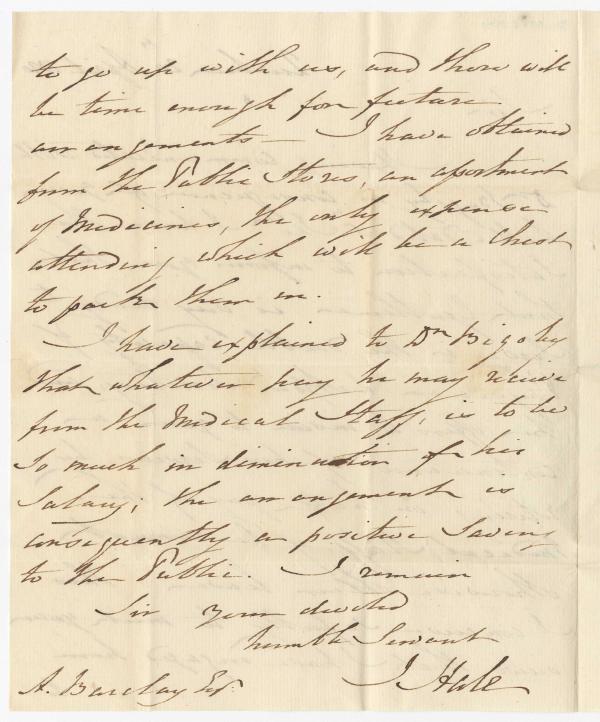 to go up with us, and there will
be time enough for future
arrangements — I have obtained
from the Public Stores, an asortment
of Medicines, the only expense
attending which will be a Chest
to pack them in.
I have explained to Dr. Bigsby
that whatever pay he may receive
from the Medical Staff, is to be
so much in diminution of his
Salary; the arrangement is
consequently a positive Saving
to the Public. I remain
Sir your devoted
humble Servant
J. Hale
A. Barclay Esqr.